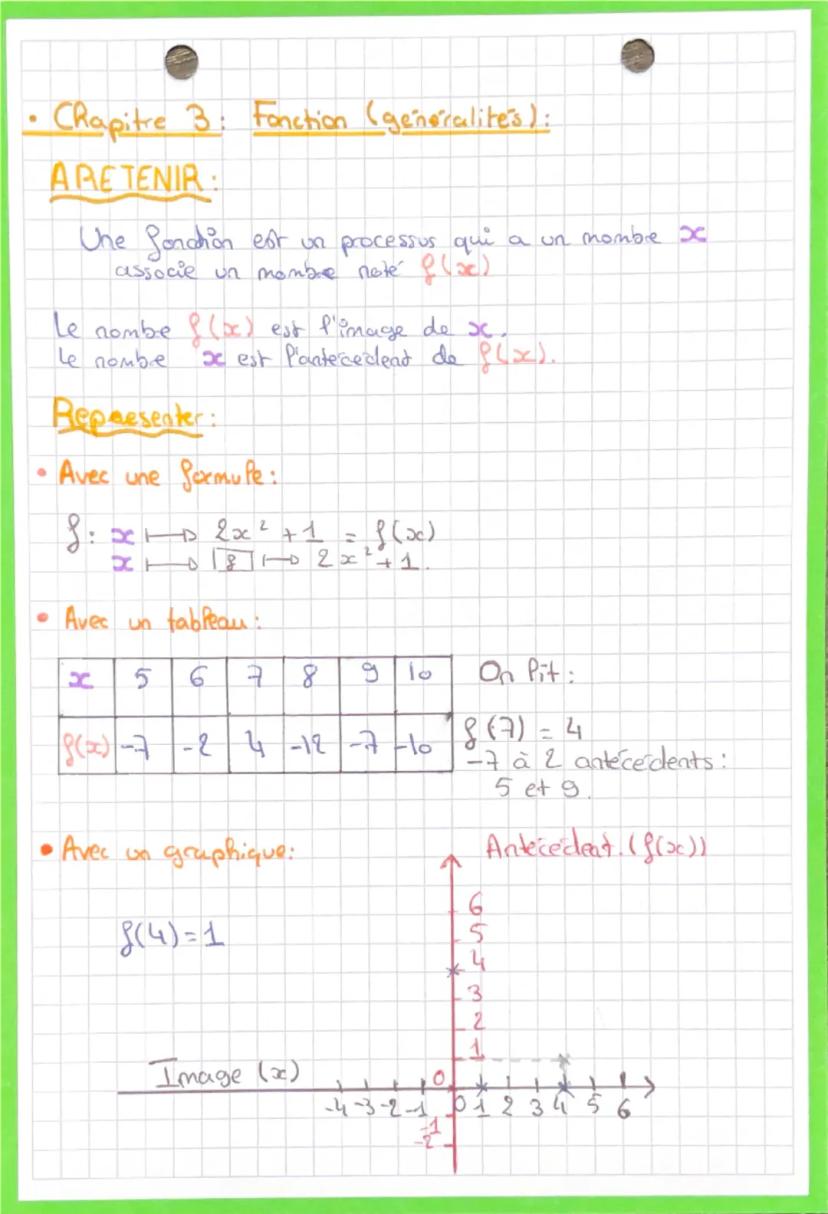 • Chapitre 3: Fonction (généralités):
A RETENIR:
Une fonction est un processus qui a un nombre x
associe un nombre noté f(x)
Le nombre f(x) est l'image de x.
Le nombre x est l'antécédent de f(x).
Representer:
• Avec une formule:
f: x ⟼ 2x² + 1 = f(x)
x ⟼ f ⟼ 2x² + 1.
• Avec un tableau:
x 5 6 7 8 9 10
f(x) -7 -2 4 -12 -7 -10
On lit:
f(7) = 4
-7 à 2 antécédents:
5 et 9.
• Avec un graphique:
Antécédent. (f(x))
f(4)=1
6
5
4
3
2
1
Image (x)
0
-4 -3 -2 -1 0 1 2 3 4 5 6
-1
-2